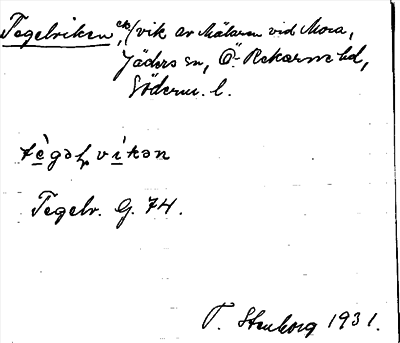 Tegelviken, ek./vik av Mälaren vid Mora,
Jäders sn, Ö. Rekarne hd,
Söderm. l.
tègəlvikən
Tegelv. G. 74.
T. Stenborg 1931.